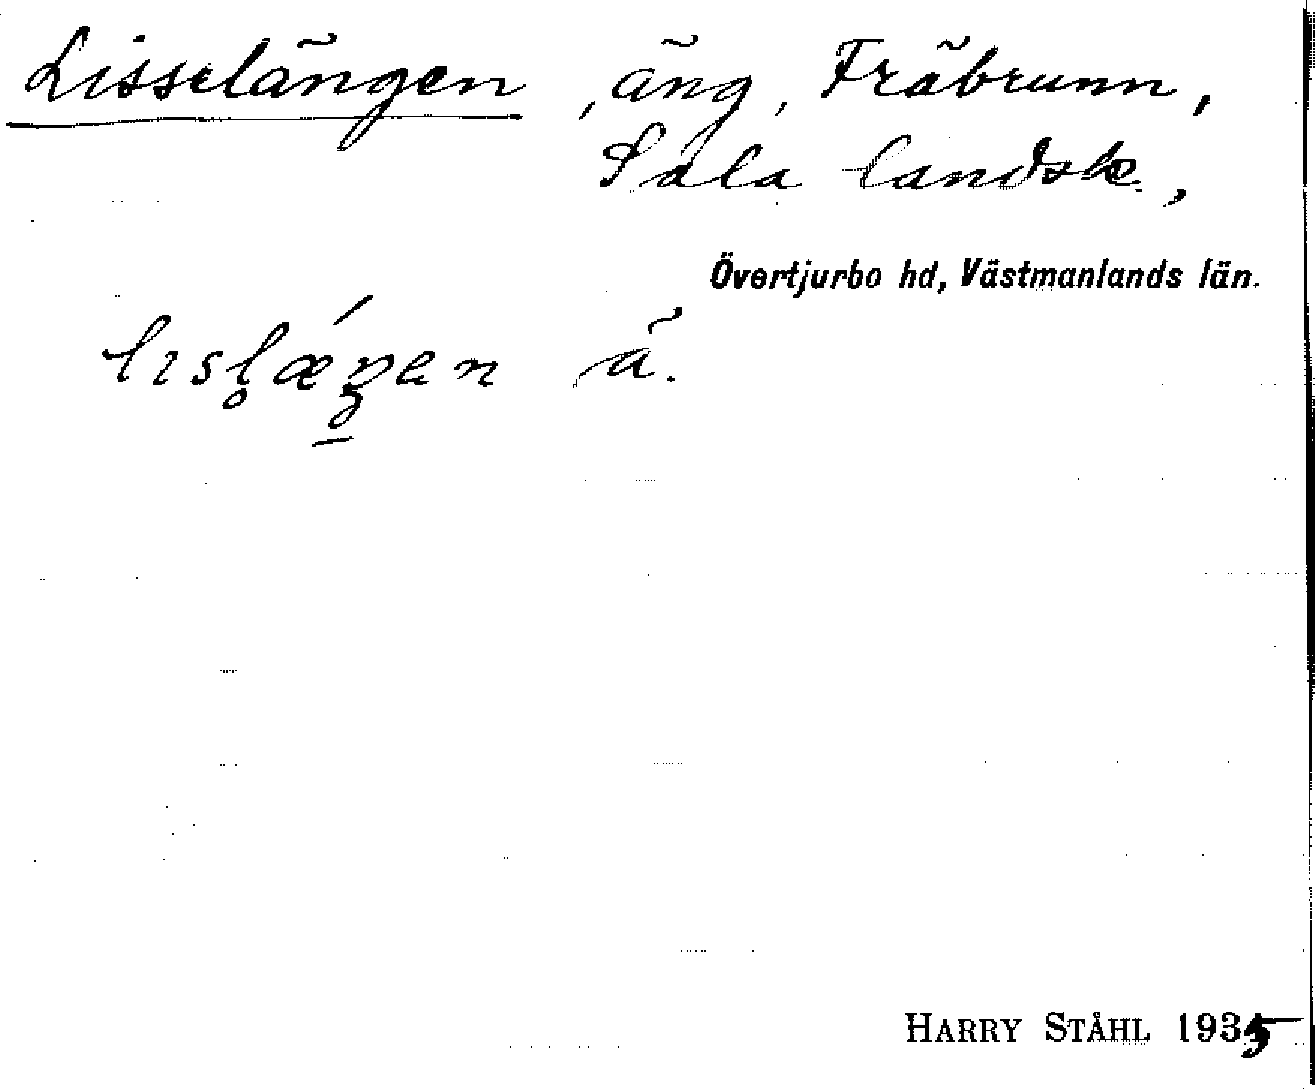 Lisselängen, äng, Fräbrunn,
Sala landsk.,
Övertjurbo hd, Västmanlands län.
lısl̥ǽŋen ä.
HARRY STÅHL 1935